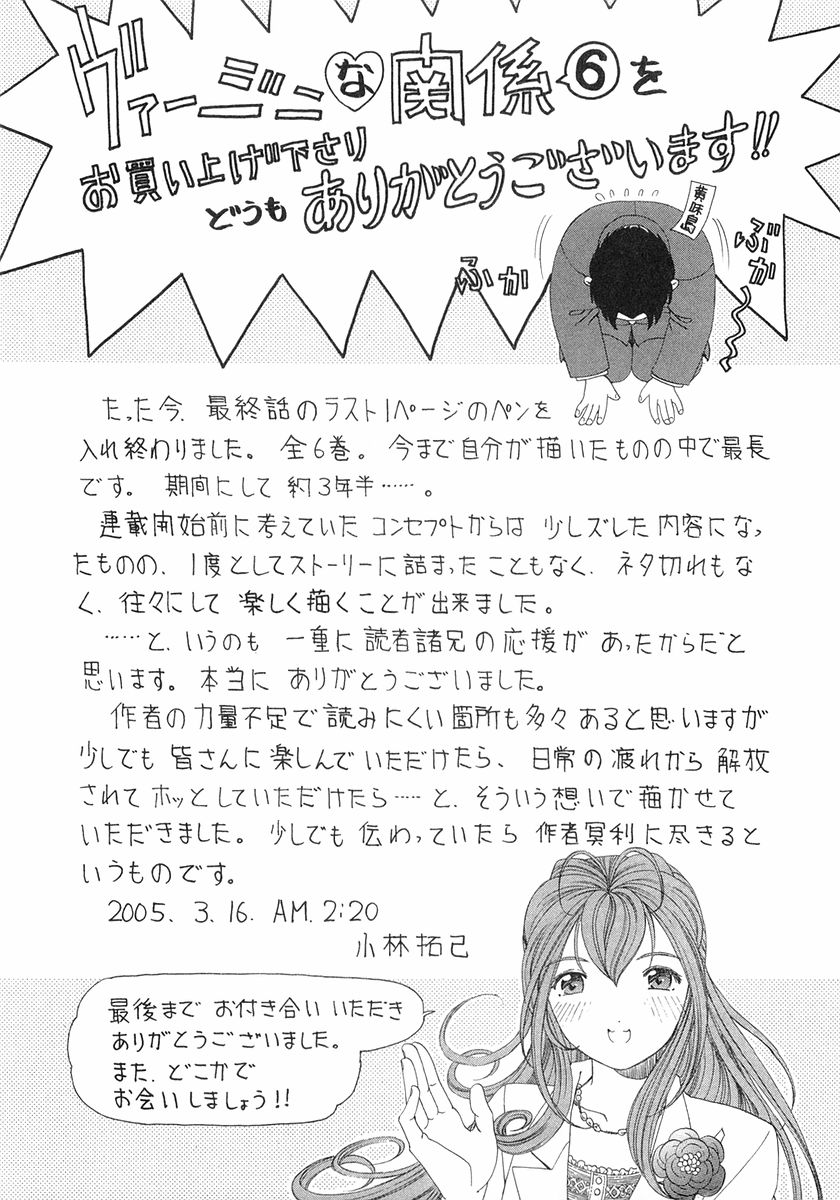 ヴァージニな関係⑥を
お買い上げ下さり
どうもありがとうございます!!
黄味島
ふか
ぶか
たった今、最終話のラスト1ページのペンを
入れ終わりました。全6巻。今まで自分が描いたものの中で最長
です。期間にして約3年半……。
連載開始前に考えていたコンセプトからは少しズした内容になっ
たものの、1度としてストーリーに詰まったこともなく、ネタ切れもな
く、往々にして楽しく描くことが出来ました。
……と、いうのも一重に読者諸兄の応援があったからだと
思います。本当にありがとうございました。
作者の力量不足で読みにくい箇所も多々あると思いますが
少しでも皆さんに楽しんでいただけたら、日常の疲れから解放
されてホッとしていただけたら……と、そういう想いで描かせて
いただきました。少しでも伝わっていたら作者冥利に尽きると
いうものです。
2005. 3. 16. AM. 2:20
小林拓己
最後までお付き合いいただき
ありがとうございました。
また、どこかで
お会いしましょう!!